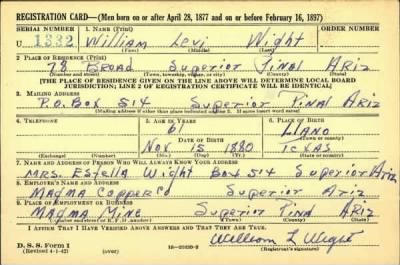 REGISTRATION CARD—(Men born on or after April 28, 1877 and on or before February 16, 1897)
SERIAL NUMBER 1. NAME (Print) ORDER NUMBER
U 1332 William Levi Wight
(First) (Middle) (Last)
2. PLACE OF RESIDENCE (Print)
78 BROAD Superior Pinal ARIZ
(Number and street) (Town, township, village, or city) (County) (State)
[THE PLACE OF RESIDENCE GIVEN ON THE LINE ABOVE WILL DETERMINE LOCAL BOARD
JURISDICTION; LINE 2 OF REGISTRATION CERTIFICATE WILL BE IDENTICAL]
3. MAILING ADDRESS
P.O. Box 514 Superior Pinal ARIZ
[Mailing address if other than place indicated on line 2. If same insert word same]
4. TELEPHONE 5. AGE IN YEARS 6. PLACE OF BIRTH
61 LLANO
DATE OF BIRTH (Town or county)
Nov 15 1880 TEXAS
(Exchange) (Number) (Mo.) (Day) (Yr.) (State or country)
7. NAME AND ADDRESS OF PERSON WHO WILL ALWAYS KNOW YOUR ADDRESS
MRS. Estella Wight Box 514 Superior ARIZ
8. EMPLOYER'S NAME AND ADDRESS
MAGMA COPPER CO Superior ARIZ
9. PLACE OF EMPLOYMENT OR BUSINESS
MAGMA MINE Superior Pinal ARIZ
(Number and street or R. F. D. number) (Town) (County) (State)
I AFFIRM THAT I HAVE VERIFIED ABOVE ANSWERS AND THAT THEY ARE TRUE.
D. S. S. Form 1 William L Wight
(Revised 4-1-42) (over) (Registrant's signature)